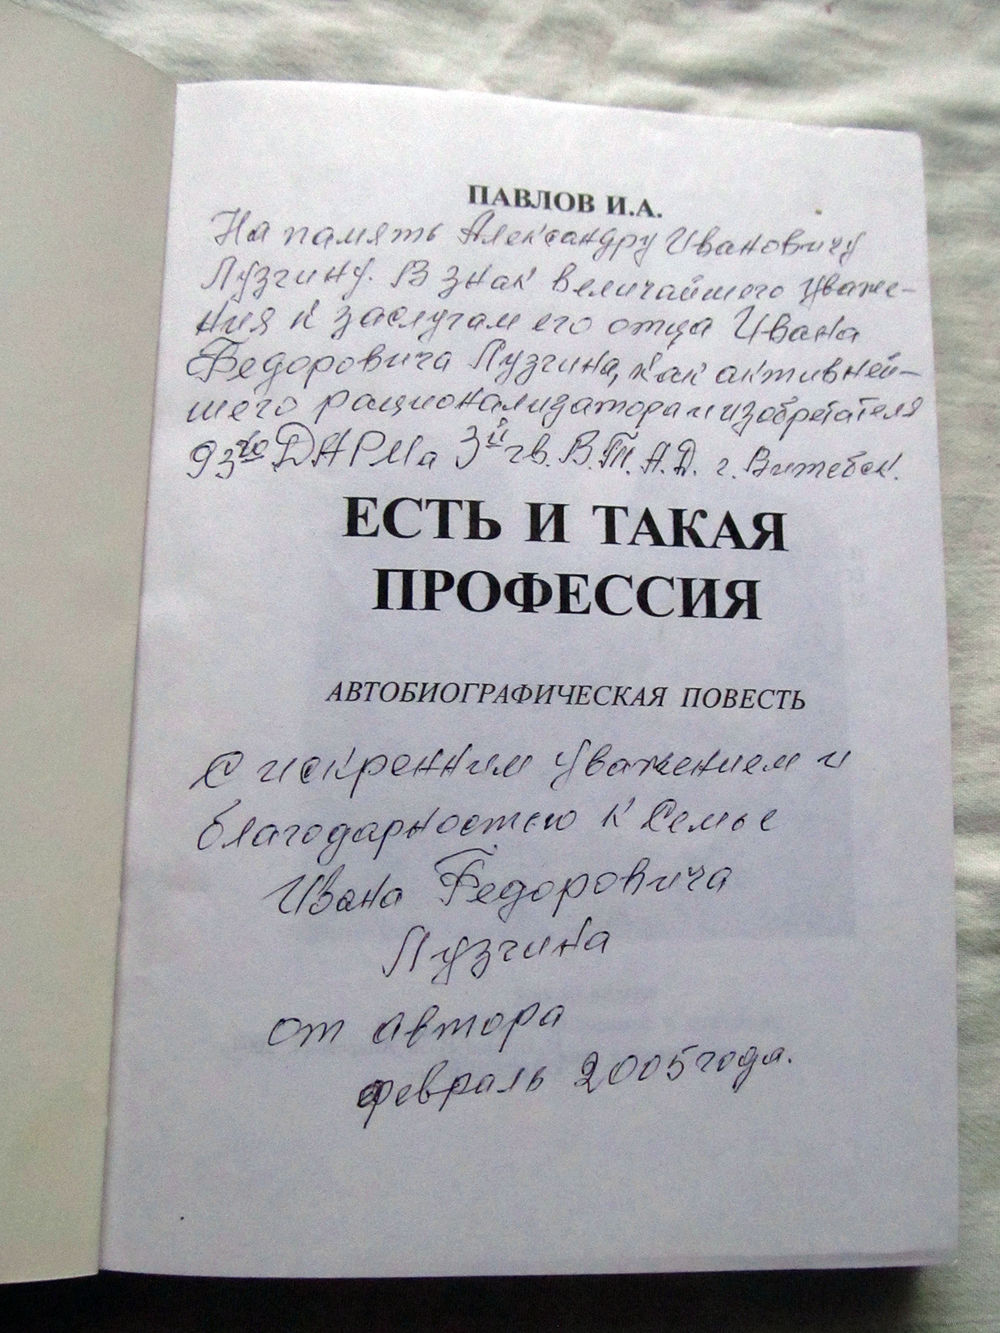 ПАВЛОВ И.А.
На память Александру Ивановичу
Лузгину. В знак величайшего уваже-
ния к заслугам его отца Ивана
Федоровича Лузгина, как активней-
шего рационализатора и изобретателя
93го ДАРМа 3й гв. В.Т.А.Д. г. Витебск.
ЕСТЬ И ТАКАЯ
ПРОФЕССИЯ
АВТОБИОГРАФИЧЕСКАЯ ПОВЕСТЬ
С искренним уважением и
благодарностью к Семье
Ивана Федоровича
Лузгина
от автора
февраль 2005 года.